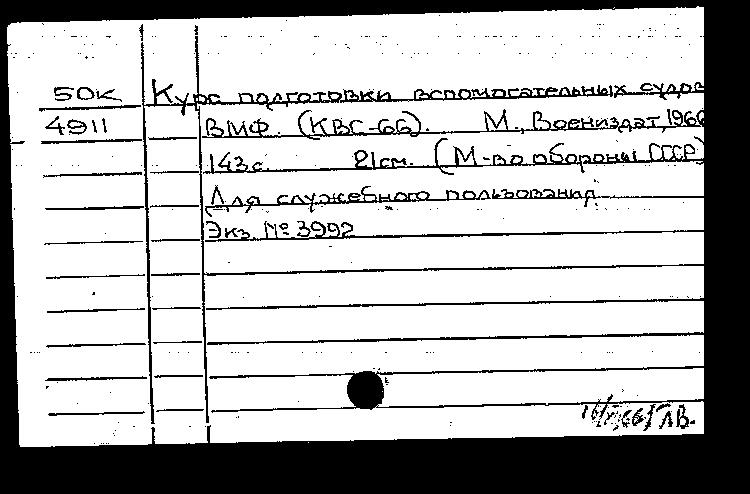 50К Курс подготовки вспомогательных судов
4911 ВМФ. (КВС-66). М., Воениздат, 1966
143с. 21см. (М-во обороны СССР)
Для служебного пользования
Экз. № 3992
ЛВ.